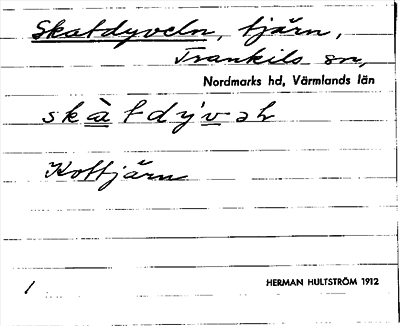 Skatdyveln, tjärn,
Trankils sn,
Nordmarks hd, Värmlands län
Kottjärn
1
HERMAN HULTSTRÖM 1912